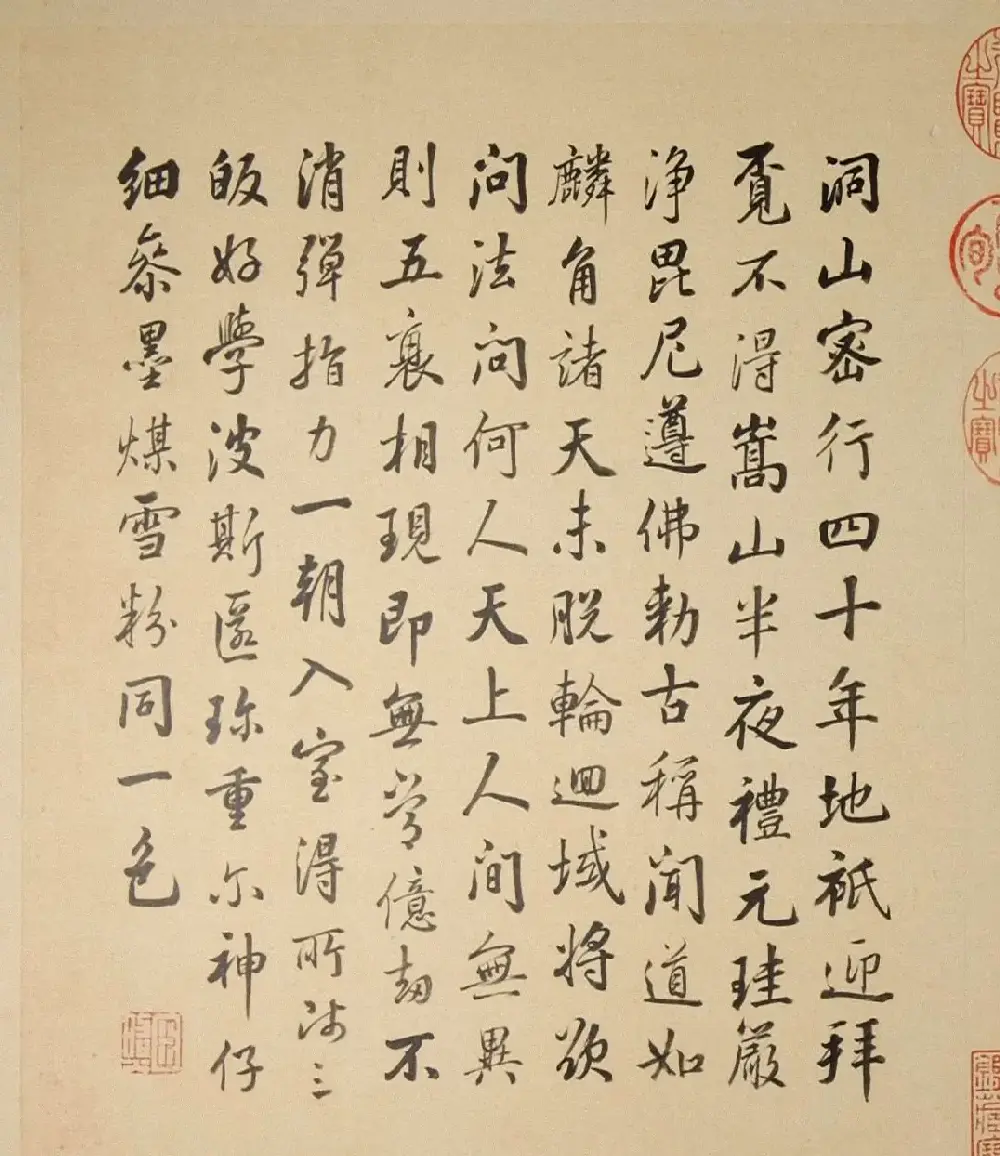 洞山密行四十年地祇迎拜
覔不得嵩山半夜禮元珪嚴
淨毘尼遵佛勅古稱聞道如
麟角諸天未脱輪迴域將欲
問法問何人天上人間無異
則五衰相現即無常億劫不
消彈指力一朝入室得所師三
皈好學波斯匿珎重尔神仔
細叅墨煤雪粉同一色